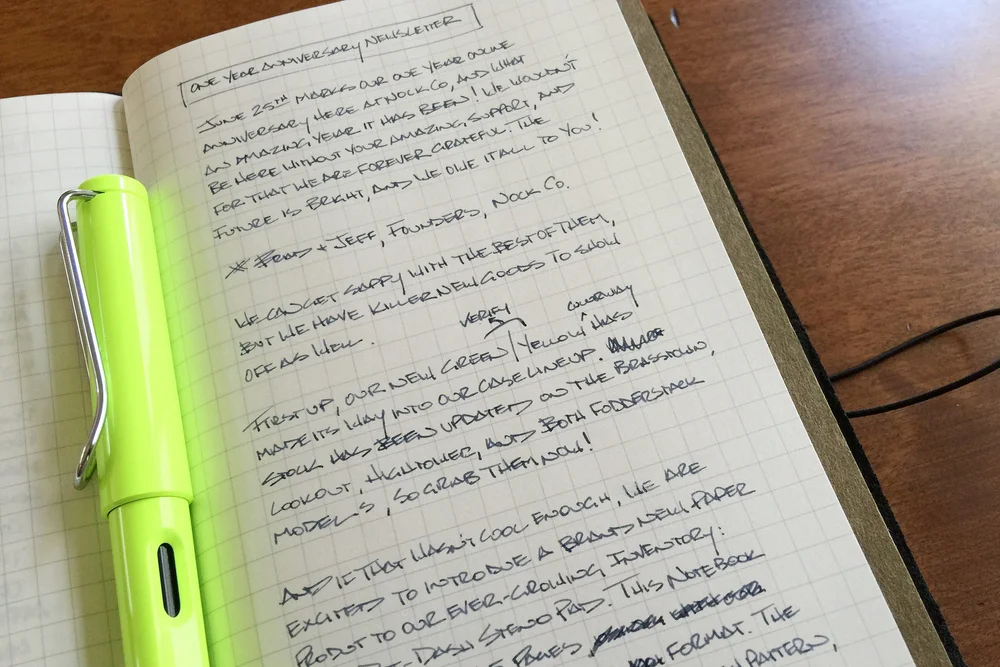 ONE YEAR ANNIVERSARY NEWSLETTER
JUNE 25TH MARKS OUR ONE YEAR ONLINE
ANNIVERSARY HERE AT NOCK CO, AND WHAT
AN AMAZING YEAR IT HAS BEEN! WE WOULDN'T
BE HERE WITHOUT YOUR AMAZING SUPPORT, AND
FOR THAT WE ARE FOREVER GRATEFUL. THE
FUTURE IS BRIGHT, AND WE OWE IT ALL TO YOU!
BRAD + JEFF, FOUNDERS, NOCK CO.
WE CAN GET SAPPY WITH THE BEST OF THEM,
BUT WE HAVE KILLER NEW GOODS TO SHOW
OFF AS WELL.
VERIFY COLORWAY
FIRST UP, OUR NEW GREEN/YELLOW HAS
MADE ITS WAY INTO OUR CASE LINEUP.
STOCK HAS BEEN UPDATED ON THE BRASSTOWN,
LOOKOUT, HIGHTOWER, AND BOTH FODDERSTACK
MODELS, SO GRAB THEM NOW!
AND IF THAT WASN'T COOL ENOUGH, WE ARE
EXCITED TO INTRODUCE A BRAND NEW PAPER
PRODUT TO OUR EVER-GROWING INVENTORY:
DASH STENO PAD. THIS NOTEBOOK
PAGES
FORMAT. THE
PATTERN,